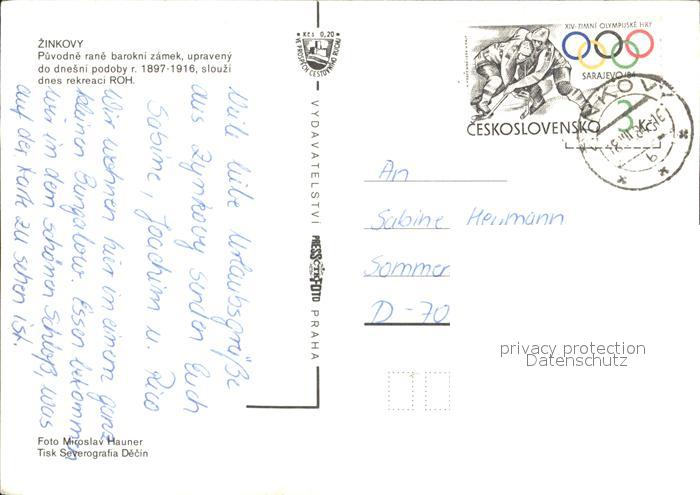 ŽINKOVY
Původně raně barokní zámek, upravený
do dnešní podoby r. 1897-1916, slouží
dnes rekreaci ROH.
Kčs 0,20
VE PROSPĚCH CESTOVNÍHO RUCHU
XIV-ZIMNÍ OLYMPIJSKÉ HRY
SARAJEVO/84
3 Kčs
ČESKOSLOVENSKO
Viele liebe Urlaubsgrüße
aus Zynkovy senden Euch
Sabine, Joachim u. Rico
Wir wohnen hier in einem ganz
kleinen Bungalow. Essen bekommen
wir in dem schönen Schloß, was
auf der Karte zu sehen ist.
VYDAVATELSTVÍ PRESSFOTO PRAHA
ČTK
An
Sabine Heumann
Sommer
D-70
privacy protection
Datenschutz
Foto Miroslav Hauner
Tisk Severografia Děčín